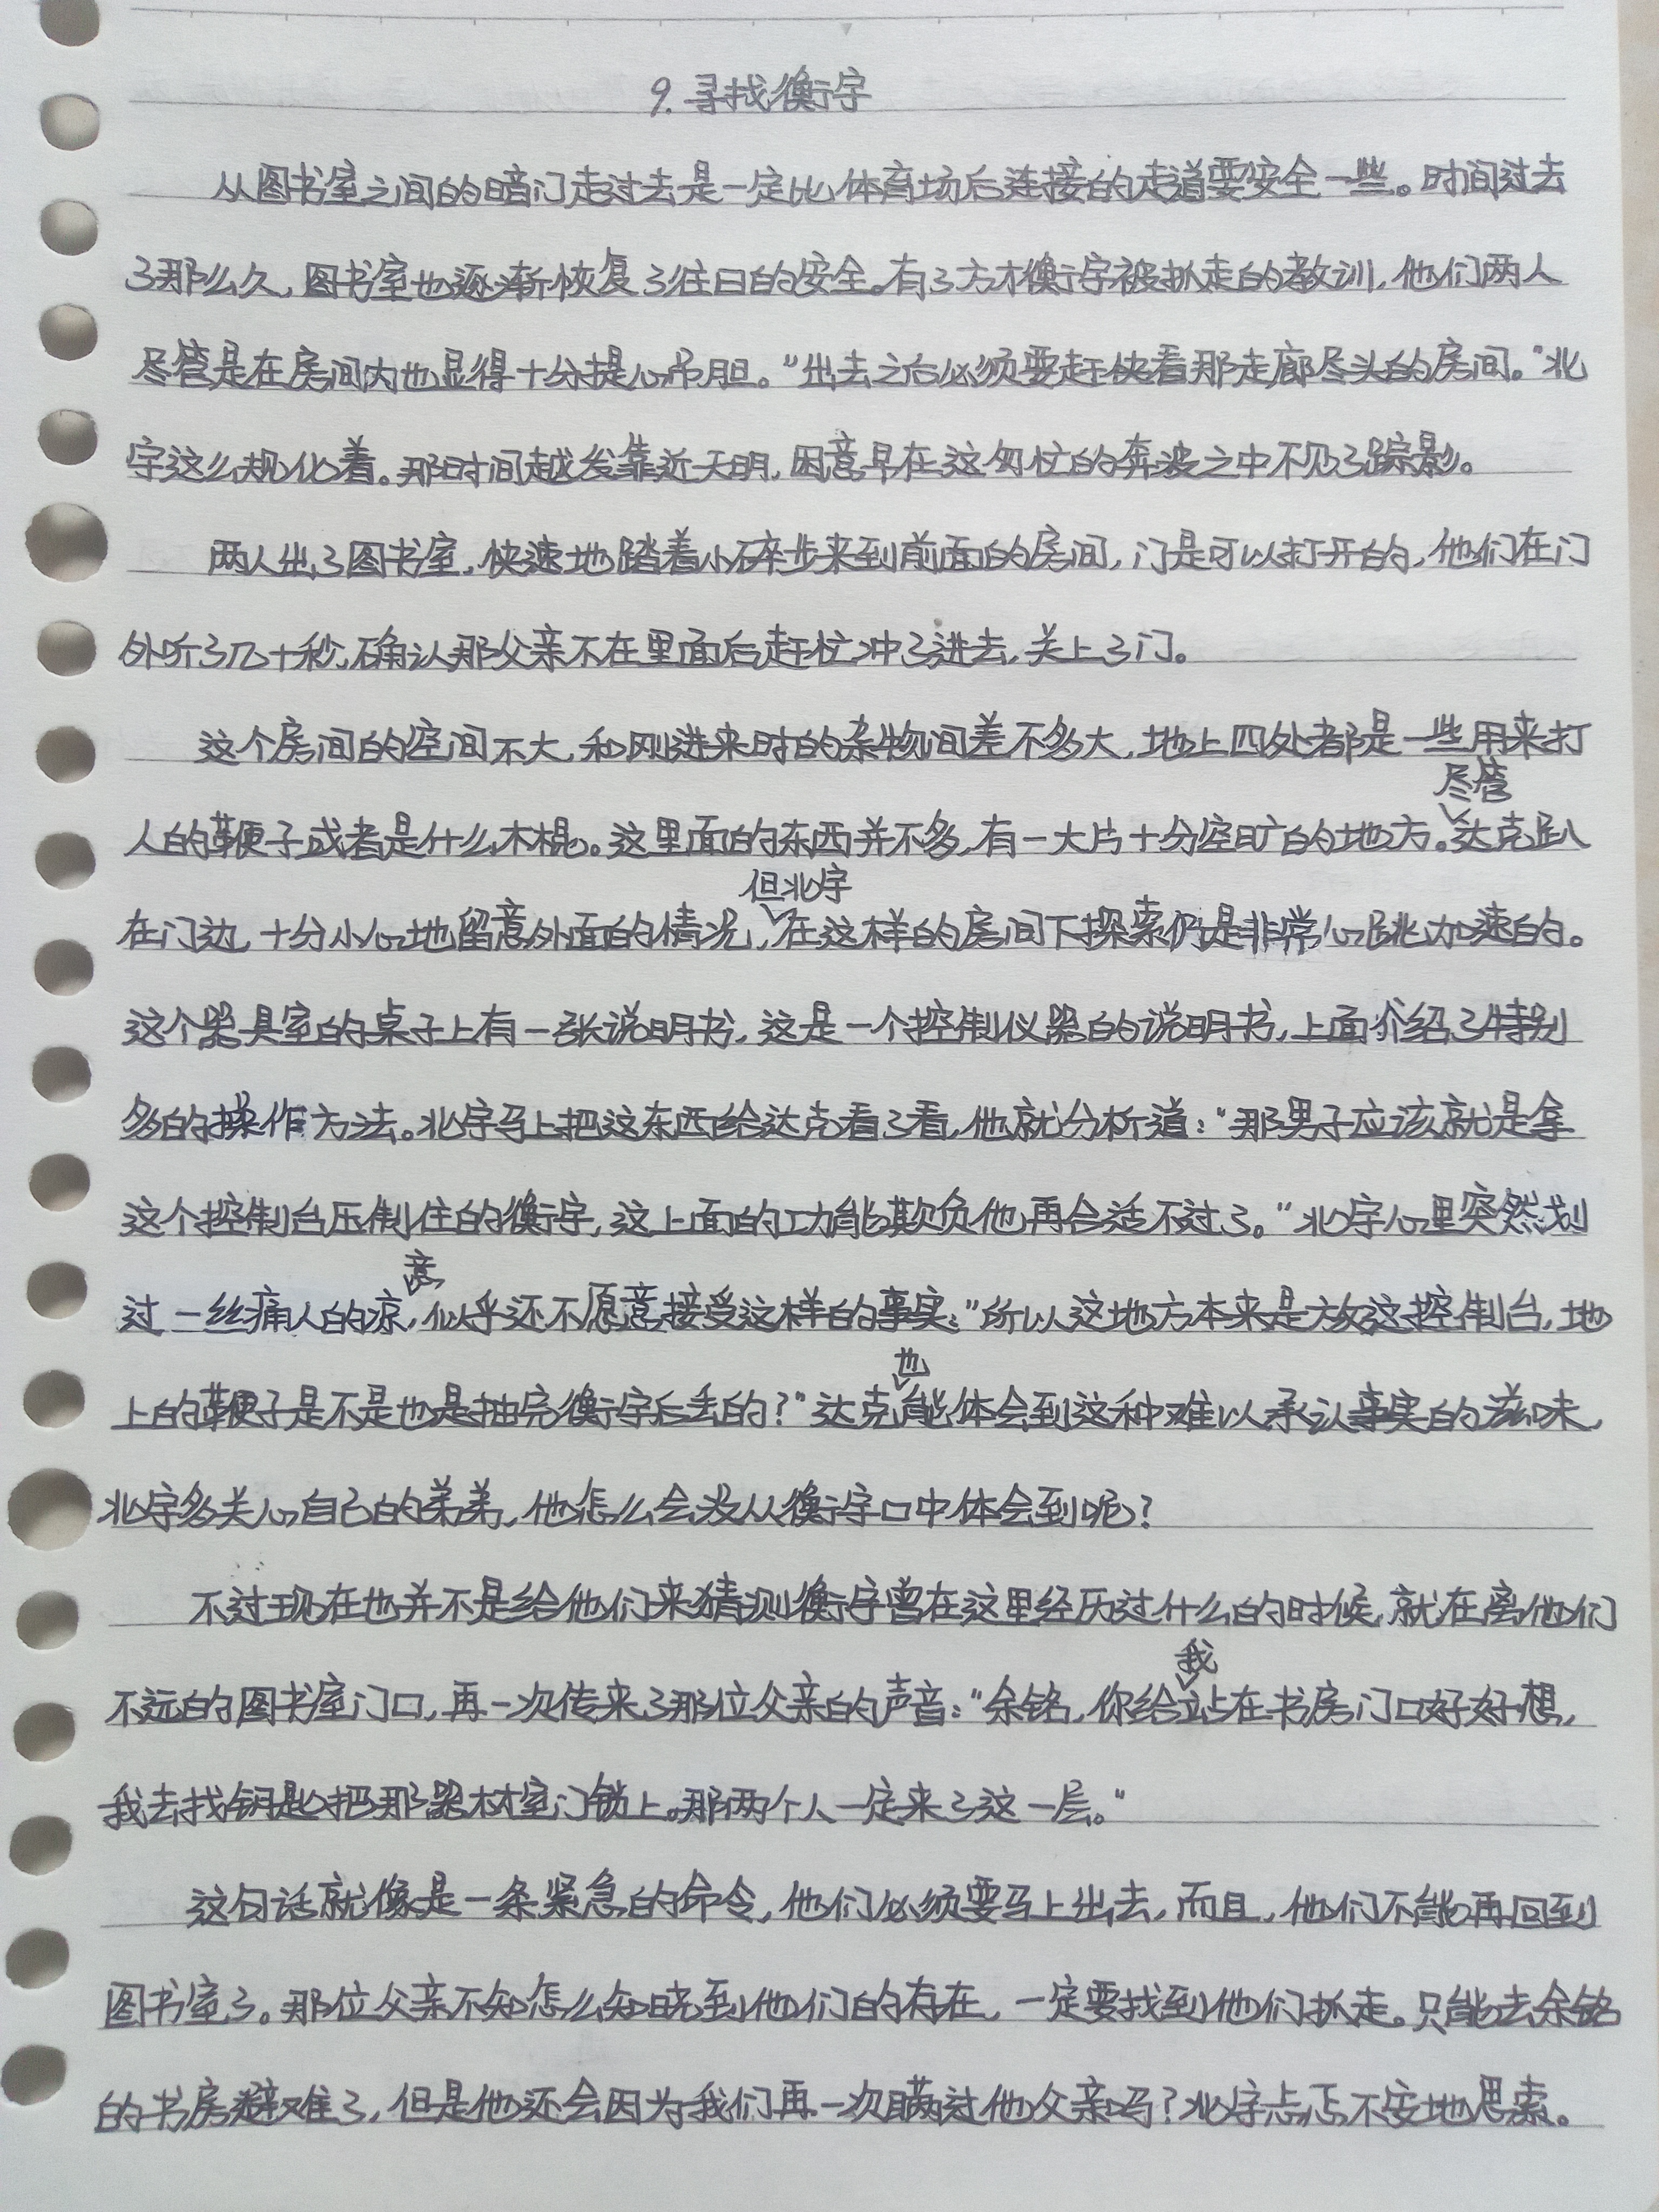 9.寻找衡宇
从图书室之间的暗门走过去是一定比体育场后连接的走道要安全一些。时间过去
了那么久,图书室也逐渐恢复了往日的安全。有了方才衡宇被抓走的教训,他们两人
尽管是在房间内也显得十分提心吊胆。“出去之后必须要赶快看那走廊尽头的房间。”北
宇这么规化着。那时间越发靠近天明,困意早在这匆忙的奔波之中不见了踪影。
两人出了图书室,快速地踏着小碎步来到前面的房间,门是可以打开的,他们在门
外听了几十秒,确认那父亲不在里面后赶忙冲了进去,关上了门。
这个房间的空间不大,和刚进来时的杂物间差不多大,地上四处都是一些用来打
人的鞭子或者是什么木棍。这里面的东西并不多,有一大片十分空旷的地方。尽管达克趴
在门边,十分小心地留意外面的情况,但北宇在这样的房间下探索仍是非常心跳加速的。
这个器具室的桌子上有一张说明书,这是一个控制仪器的说明书,上面介绍了特别
多的操作方法。北宇马上把这东西给达克看了看,他就分析道:“那男子应该就是拿
这个控制台压制住的衡宇,这上面的功能欺负他再合适不过了。”北宇心里突然划
过一丝痛人的凉意,似乎还不愿意接受这样的事实:“所以这地方本来是放这控制台,地
上的鞭子是不是也是抽完衡宇后丢的?”达克也能体会到这种难以承认事实的滋味,
北宇多关心自己的弟弟,他怎么会没从衡宇口中体会到呢?
不过现在也并不是给他们来猜测衡宇曾在这里经历过什么的时候,就在离他们
不远的图书室门口,再一次传来了那位父亲的声音:“余铭,你给我站在书房门口好好想,
我去找钥匙把那器材室门锁上。那两个人一定来了这一层。”
这句话就像是一条紧急的命令,他们必须要马上出去,而且,他们不能再回到
图书室了。那位父亲不知怎么知晓到他们的存在,一定要找到他们抓走。只能去余铭
的书房避难了,但是他还会因为我们再一次瞒过他父亲吗?北宇忐忑不安地思索。